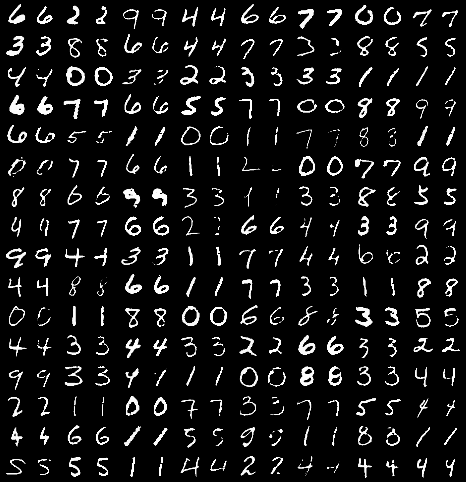 6 6 2 2 9 9 4 4 6 6 7 7 0 0 7 7
3 3 8 8 6 6 4 4 7 7 3 3 8 8 5 5
4 4 0 0 3 3 2 2 3 3 3 3 1 1 1 1
6 6 7 7 6 6 5 5 7 7 0 0 8 8 9 9
6 6 5 5 1 1 0 0 1 1 7 7 8 8 1 1
0 0 7 7 6 6 1 1 2 0 0 7 7 9 9
8 8 6 6 9 9 3 3 1 1 3 3 8 8 5 5
9 9 7 7 6 6 2 2 6 6 4 4 3 3 9 9
9 9 4 4 3 3 1 1 7 7 4 4 6 6 2 2
4 4 8 8 6 6 1 1 7 7 3 3 1 1 8 8
0 0 1 1 8 8 0 0 6 6 8 8 3 3 5 5
4 4 3 3 4 4 3 3 2 2 6 6 3 3 2 2
9 9 3 3 4 1 1 0 0 8 8 3 3 4 4
2 2 1 1 0 0 7 7 3 3 7 7 5 5 4 4
4 4 6 6 1 1 5 5 9 1 1 8 8 1 1
5 5 5 5 1 1 4 4 2 2 4 4 4 9 9